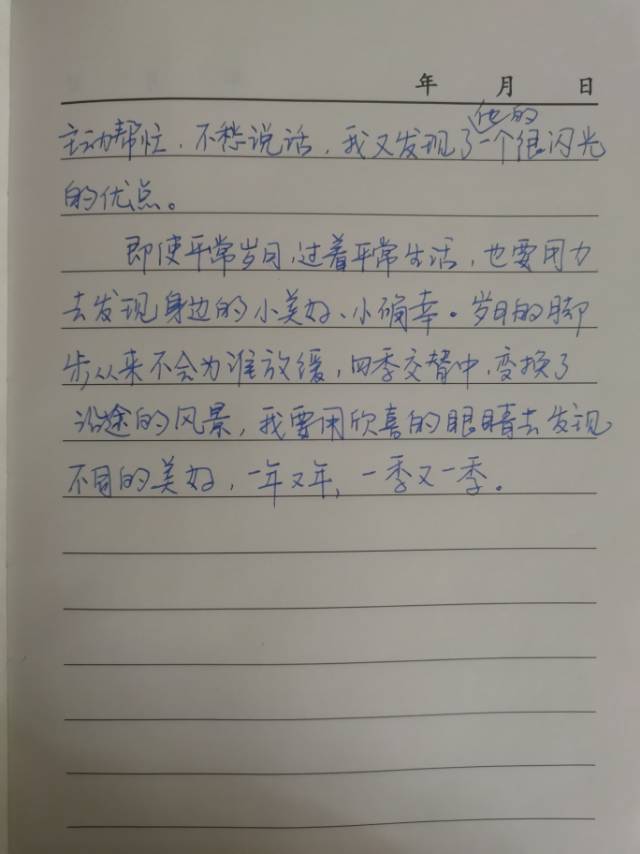 年 月 日
主动帮忙、不愁说话,我又发现了他的一个很闪光
的优点。
即使平常岁月,过着平常生活,也要用力
去发现身边的小美好、小确幸。岁月的脚
步从来不会为谁放缓,四季交替中,变换了
沿途的风景,我要用欣喜的眼睛去发现
不同的美好,一年又年,一季又一季。